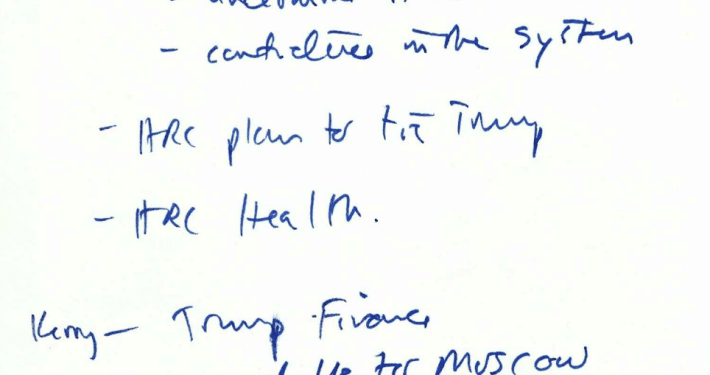 - candidates in the system
- HRC plan to tie Trump
- HRC Health.
Kerry – Trump Finance
for Moscow